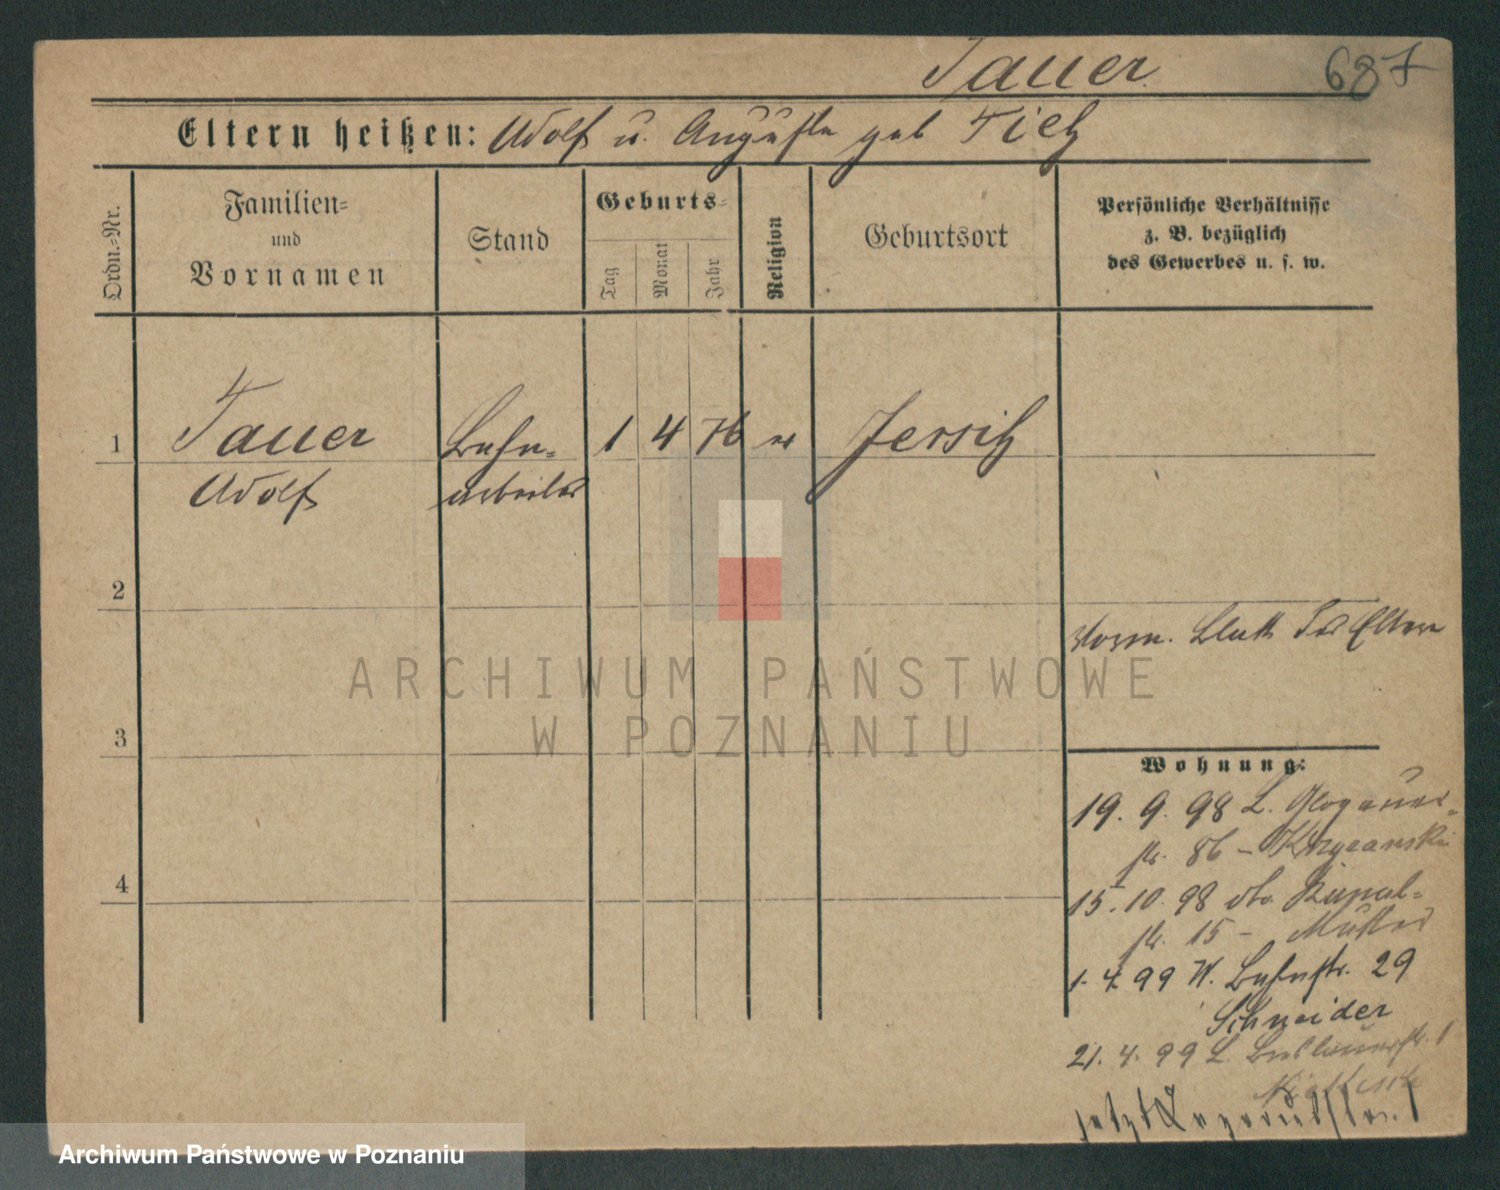 Tauer
687
Eltern heißen: Adolf u. Auguste geb Tietz
Ordn.=Nr.
Familien=
und
Vornamen
Stand
Geburts=
Tag
Monat
Jahr
Religion
Geburtsort
Persönliche Verhältnisse
z. B. bezüglich
des Gewerbes u. s. w.
1
Tauer
Adolf
Bahn=
arbeiter
1 4 76
Jersitz
2
Vorm. Blatt Eltern
3
4
Wohnung:
19. 9. 98 L. Glogauer=
str. 86 –
15. 10. 98 Kanal=
str. 15 – Mutter
1. 4. 99 W. Bahnstr. 29
Schneider
21. 4. 99 L.
jetzt
ARCHIWUM PAŃSTWOWE
W POZNANIU
Archiwum Państwowe w Poznaniu